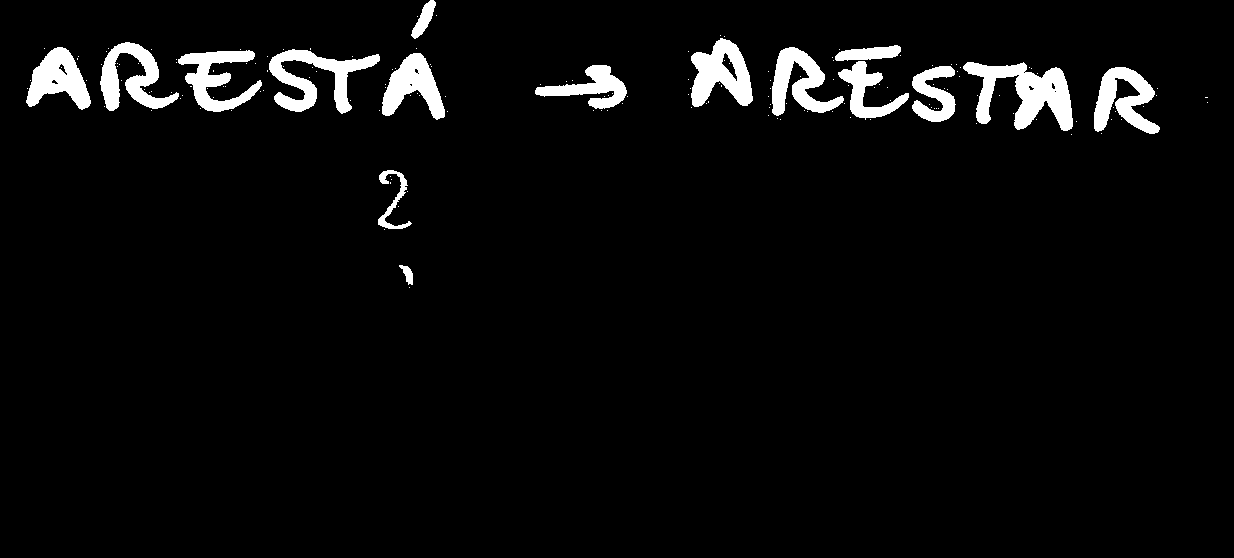 ARESTÁ → ARESTAR
?